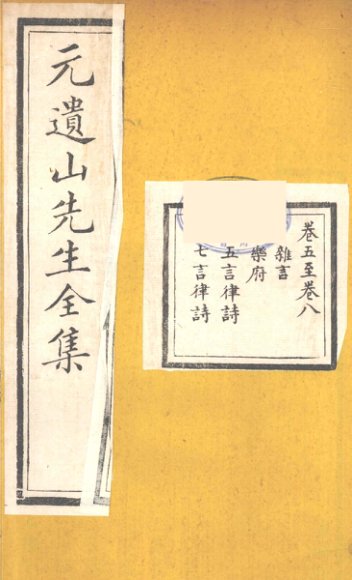 元遺山先生全集
卷五至卷八
雜言
樂府
五言律詩
七言律詩